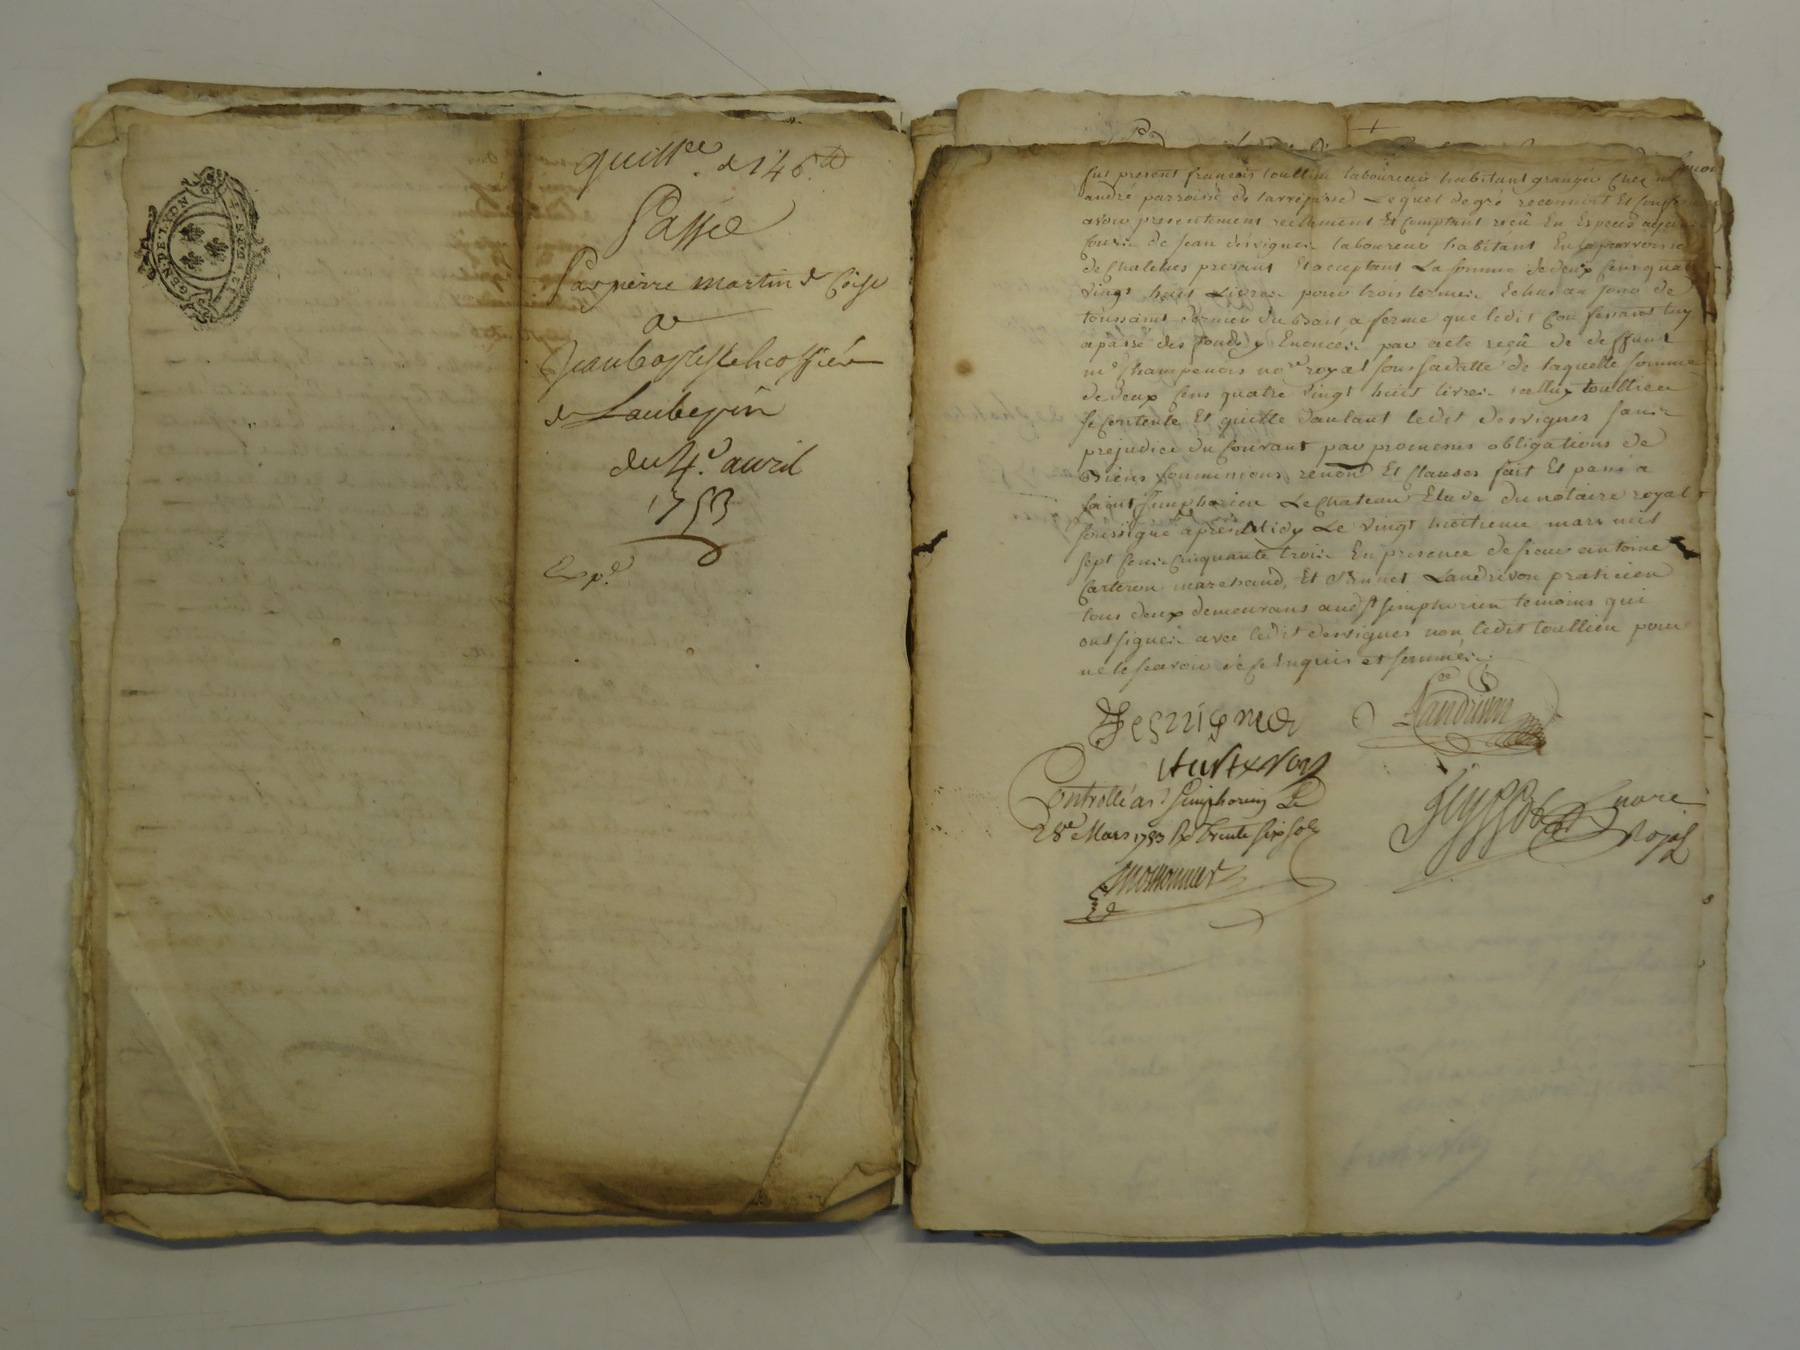 GEN·DE·LYON
quittce. de 146 tt
Passée
Par pierre martin de Coise
a
Jean baptiste
de Laubepin
du 4e. avril
1753
Exp.é
fut present francois toullieu laboureur habitant granger chez mr
andré parroisse de larrejasse Lequel de gré reconnoit Et confesse
avoir presentement reellement Et comptant reçû En Especes ayant
cours de Jean desvignes laboureur habitant En la parroisse
de Chatelus present Et acceptant La somme de deux cens quatre
vingt huit Livres pour trois termes Echus au jour de
toussaint dernier du Bail a ferme que ledit Confessant luy
a passé des fonds y Enoncés par acte reçû de deffunt
me Champenois nore royal sous sa datte de laquelle somme
de deux cens quatre vingt huit livres icelluy toullieu
se contente Et quitte dautant ledit desvignes sans
prejudice du Courant par promesses obligations de
Biens soumissions renon Et Clauses fait Et passé a
saint simphorien Le Chateau Etude du notaire royal
soussigné apres Midy Le vingt huitieme mars mil
sept cens cinquante trois En presence de sieur antoine
Carteron marchand, Et Bennet Landrivon praticien
tous deux demeurans aud st simphorien temoins qui
ont signés avec ledit desvignes non ledit toullieu pour
ne le scavoir de ce Enquis et sommés
Desvigne
Landrivon
Carteron
Controllé a st simphorien Le
28e Mars 1753 Rx Trente six sols
nore
Royal